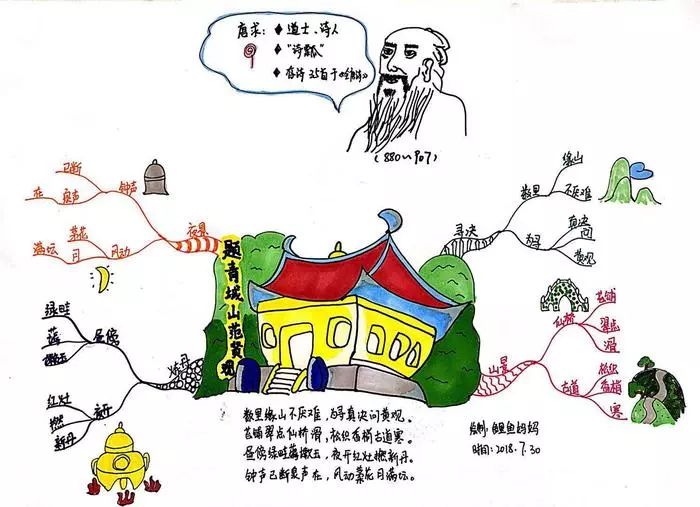 唐求: ◆ 道士、诗人
◆ "诗瓢"
◆ 存诗 35首于《全唐诗》
(880~907)
题青城山范贤观
夜景
钟声
已断
泉声
在
风动
茅花
月
满坛
炼丹
昼傍
绿畦
薅
嫩玉
夜开
红灶
撚
新丹
寻诀
数里
缘山
不厌难
为寻
真诀
问
黄观
山景
仙桥
苔铺
翠点
滑
古道
松织
香梢
寒
数里缘山不厌难，为寻真诀问黄观。
苔铺翠点仙桥滑，松织香梢古道寒。
昼傍绿畦薅嫩玉，夜开红灶撚新丹。
钟声已断泉声在，风动茅花月满坛。
绘制: 鲤鱼妈妈
时间: 2018.7.30